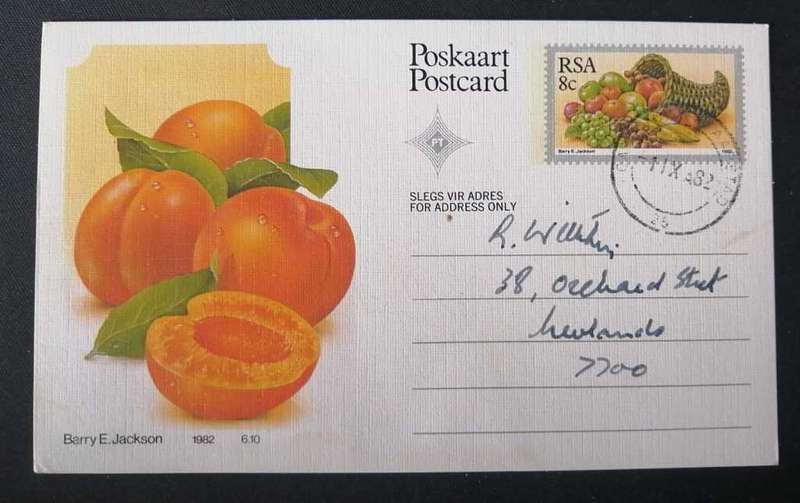 Poskaart
Postcard
RSA
8c
Barry E. Jackson 1982
PT
-1 IX 82
26
SLEGS VIR ADRES
FOR ADDRESS ONLY
R.
38, Orchard Street
Newlands
7700
Barry E. Jackson 1982 6.10